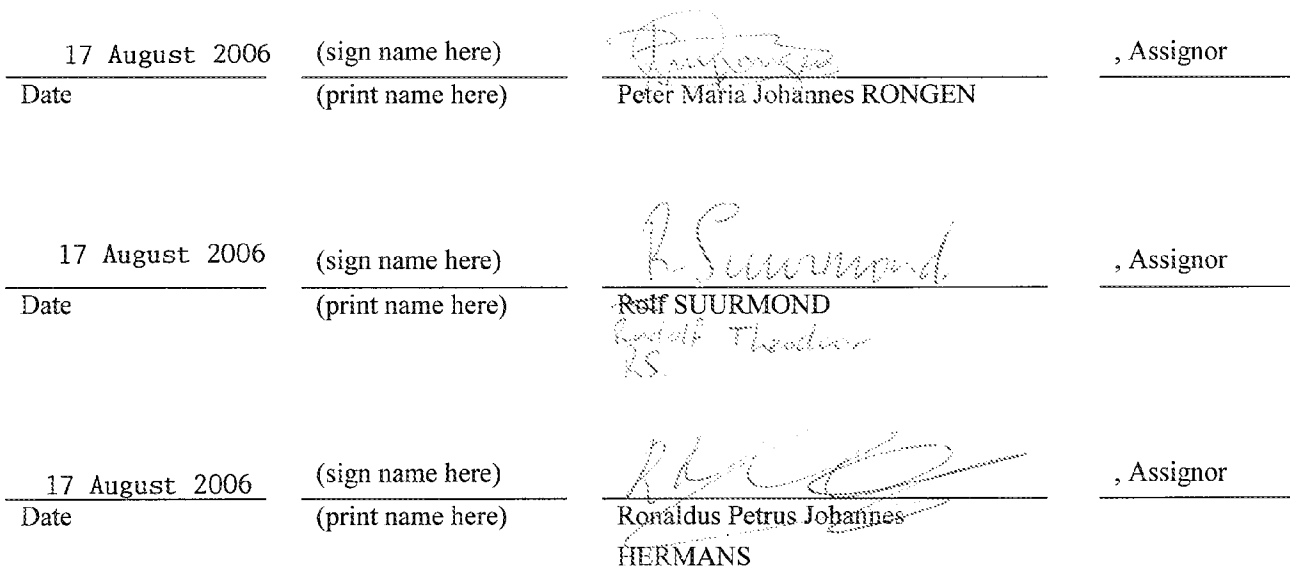 17 August 2006 (sign name here) , Assignor
Date (print name here) Peter Maria Johannes RONGEN
17 August 2006 (sign name here) R. Suurmond , Assignor
Date (print name here) Rolf SUURMOND
Rudolf Theodoor
RS.
17 August 2006 (sign name here) , Assignor
Date (print name here) Ronaldus Petrus Johannes
HERMANS